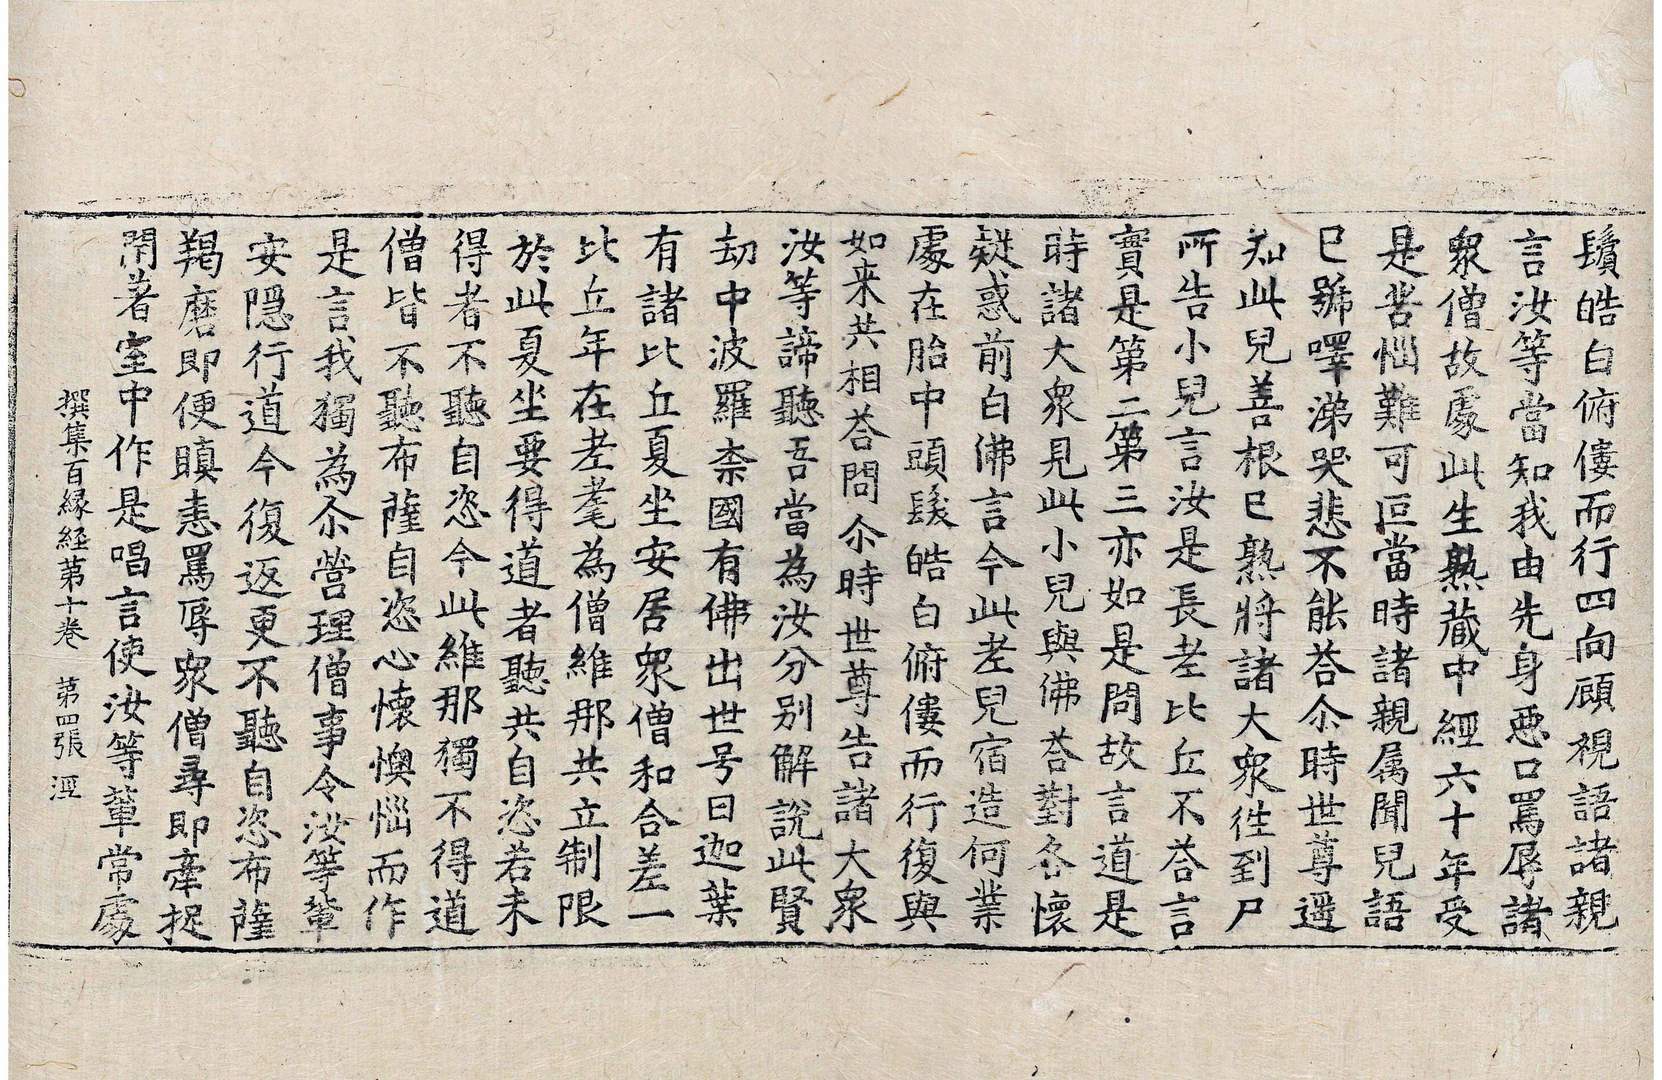 鬚皓白俯僂而行四向顧視語諸親
言汝等當知我由先身惡口罵辱諸
衆僧故處此生熟蔵中經六十年受
是苦惱難可叵當時諸親属聞兒語
已號嘑涕哭悲不能荅尒時世尊遥
知此兒善根已熟將諸大衆徃到尸
所告小兒言汝是長老比丘不荅言
實是第二第三亦如是問故言道是
時諸大衆見此小兒與佛荅對各懷
疑惑前白佛言今此老兒宿造何業
處在胎中頭髮皓白俯僂而行復與
如来共相荅問尒時世尊告諸大衆
汝等諦聽吾當為汝分别解説此賢
劫中波羅柰國有佛出世号曰迦葉
有諸比丘夏坐安居衆僧和合差一
比丘年在老耄為僧維那共立制限
於此夏坐要得道者聽共自恣若未
得者不聽自恣今此維那獨不得道
僧皆不聽布薩自恣心懷懊惱而作
是言我獨為尒營理僧事令汝等輩
安隱行道今復返更不聽自恣布薩
羯磨即便瞋恚罵辱衆僧尋即牽捉
閇著室中作是唱言使汝等輩常處
撰集百縁経第十卷 第四張 涇